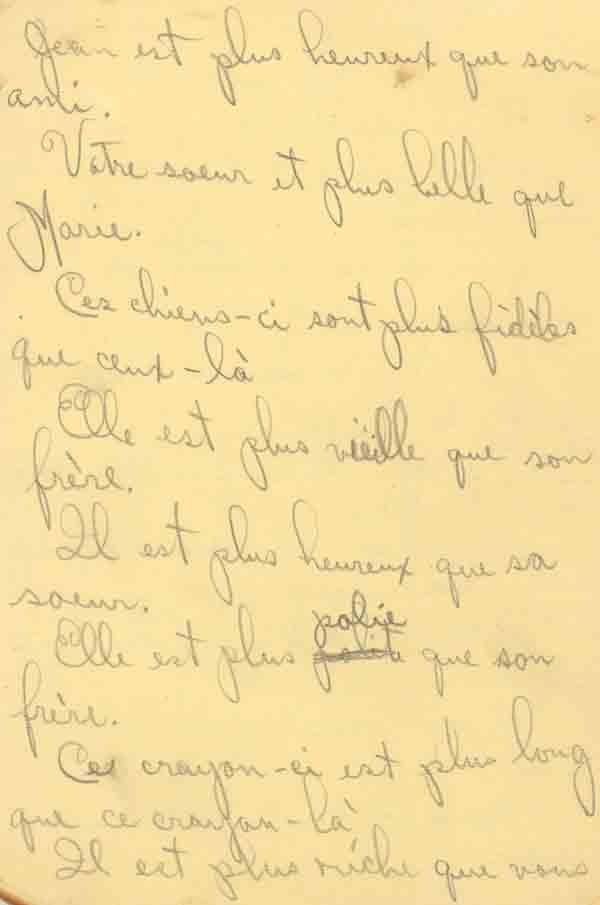 Jean est plus heureux que son
ami.
Votre soeur et plus belle que
Marie.
Ces chiens-ci sont plus fidèles
que ceux-là
Elle est plus vieille que son
frère.
Il est plus heureux que sa
soeur.
polie
Elle est plus que son
frère.
Ce crayon-ci est plus long
que ce crayon-là
Il est plus riche que vous